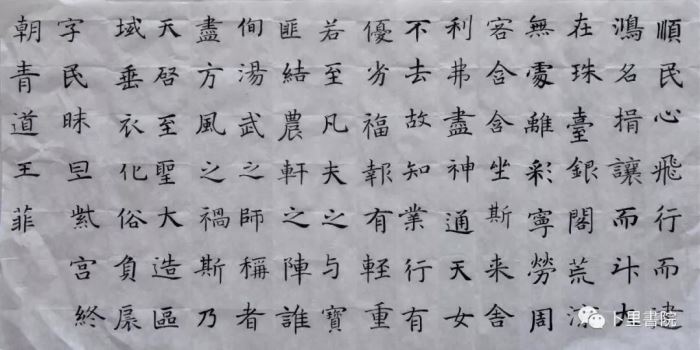 順民心飛行而建
鴻名揖讓而升大
在珠臺銀閣荒涼
無處離彩寧勞周
客含含坐斯来舍
利弗盡神通天女
不去故知業行有
優劣福報有輕重
若至凡夫之与寶
匪結農軒之陣誰
侚湯武之師稱者
盡方風之禍斯乃
天启至聖大造區
域垂衣化俗負扆
字民昧旦紫宮終
朝青道王菲
卜里書院